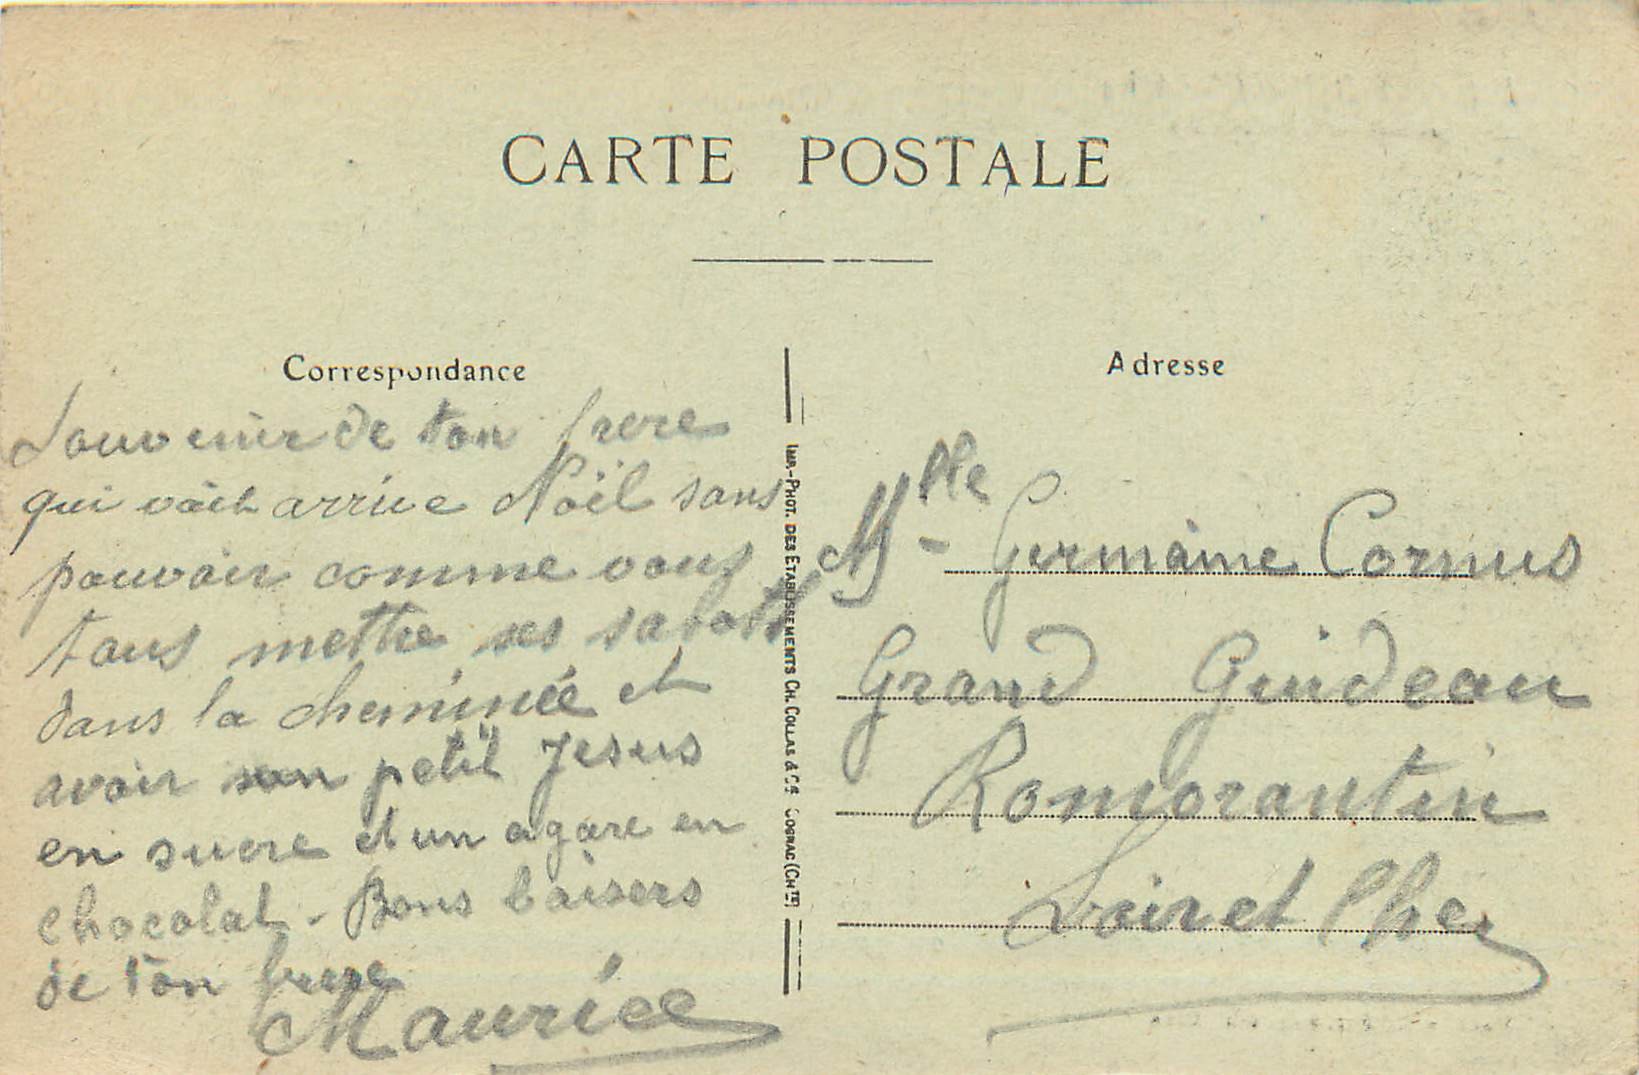 CARTE POSTALE
Correspondance
Souvenir de ton frere
qui voit arrive Noël sans
pouvoir comme vous
tous mettre ses sabots
dans la cheminée et
avoir son petit Jesus
en sucre et un agare en
chocolat - Bons baisers
de ton frere
Maurice
IMP.-PHOT. DES ETABLISSEMENTS CH. COLLAS & Cie COGNAC (CHte)
Adresse
Mlle - Germaine Cornus
Grand Guideau
Romorantin
Loir et Cher